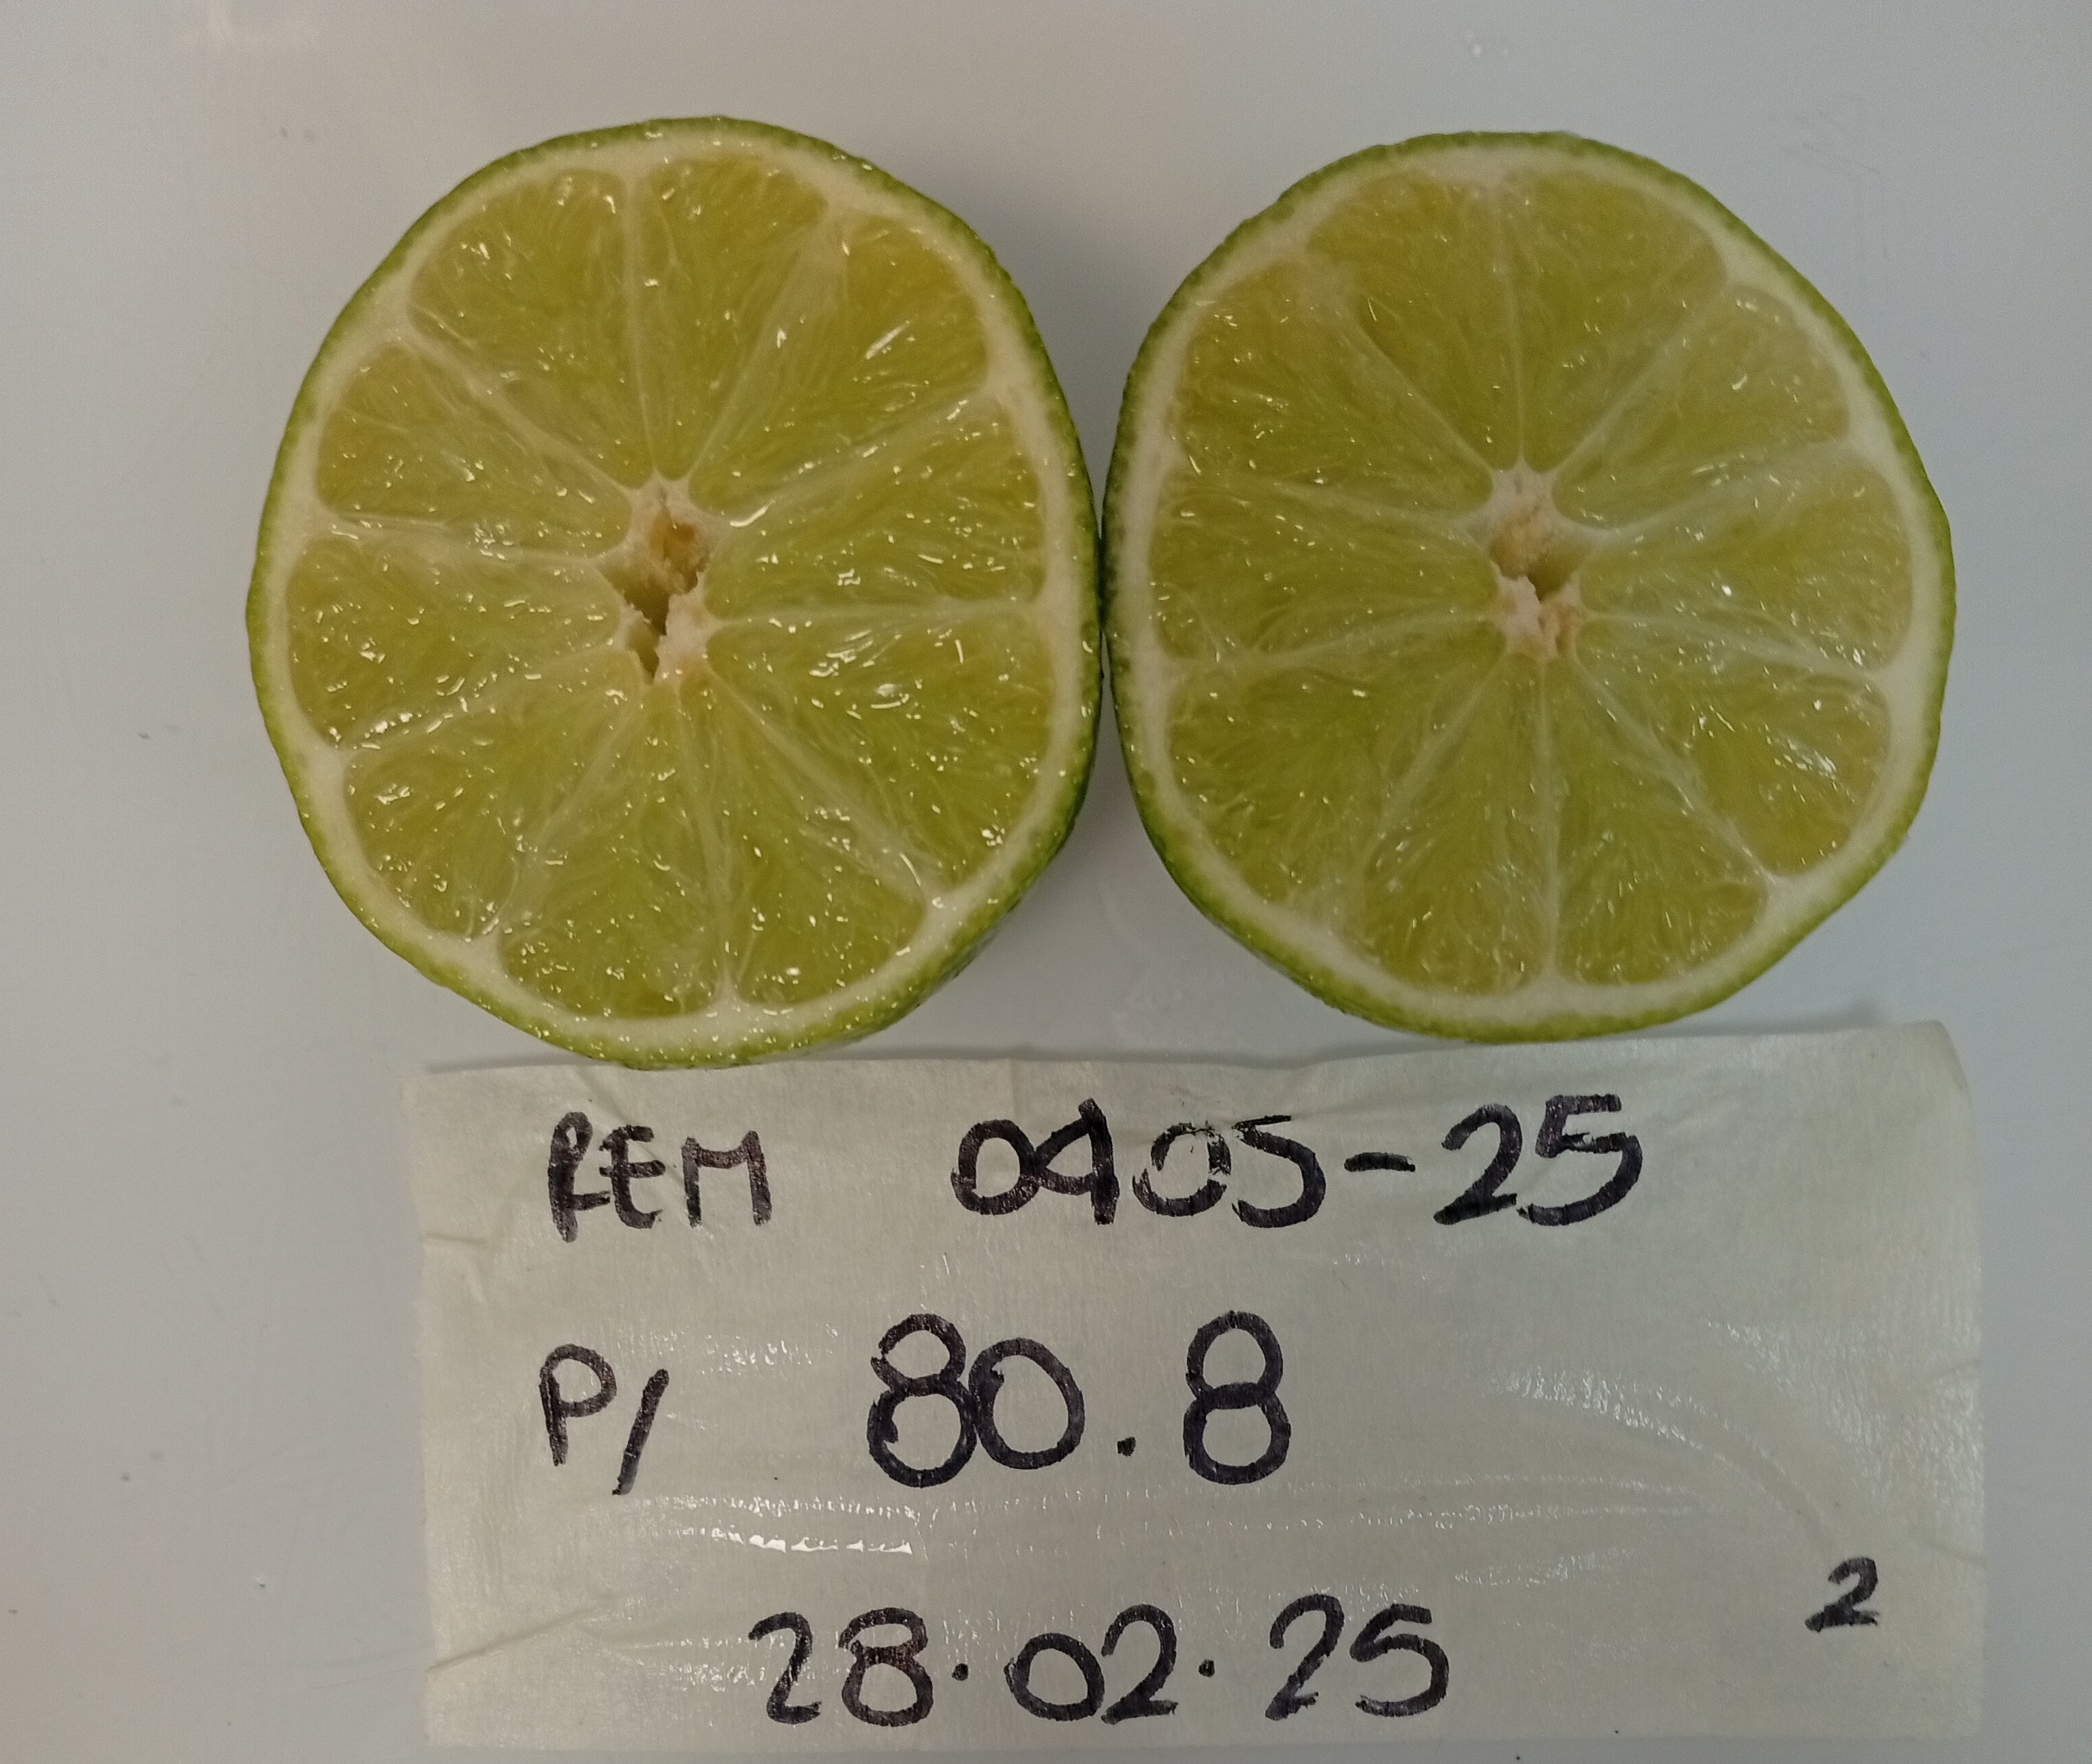 REM 0405-25
P/ 80.8
28.02.25
2